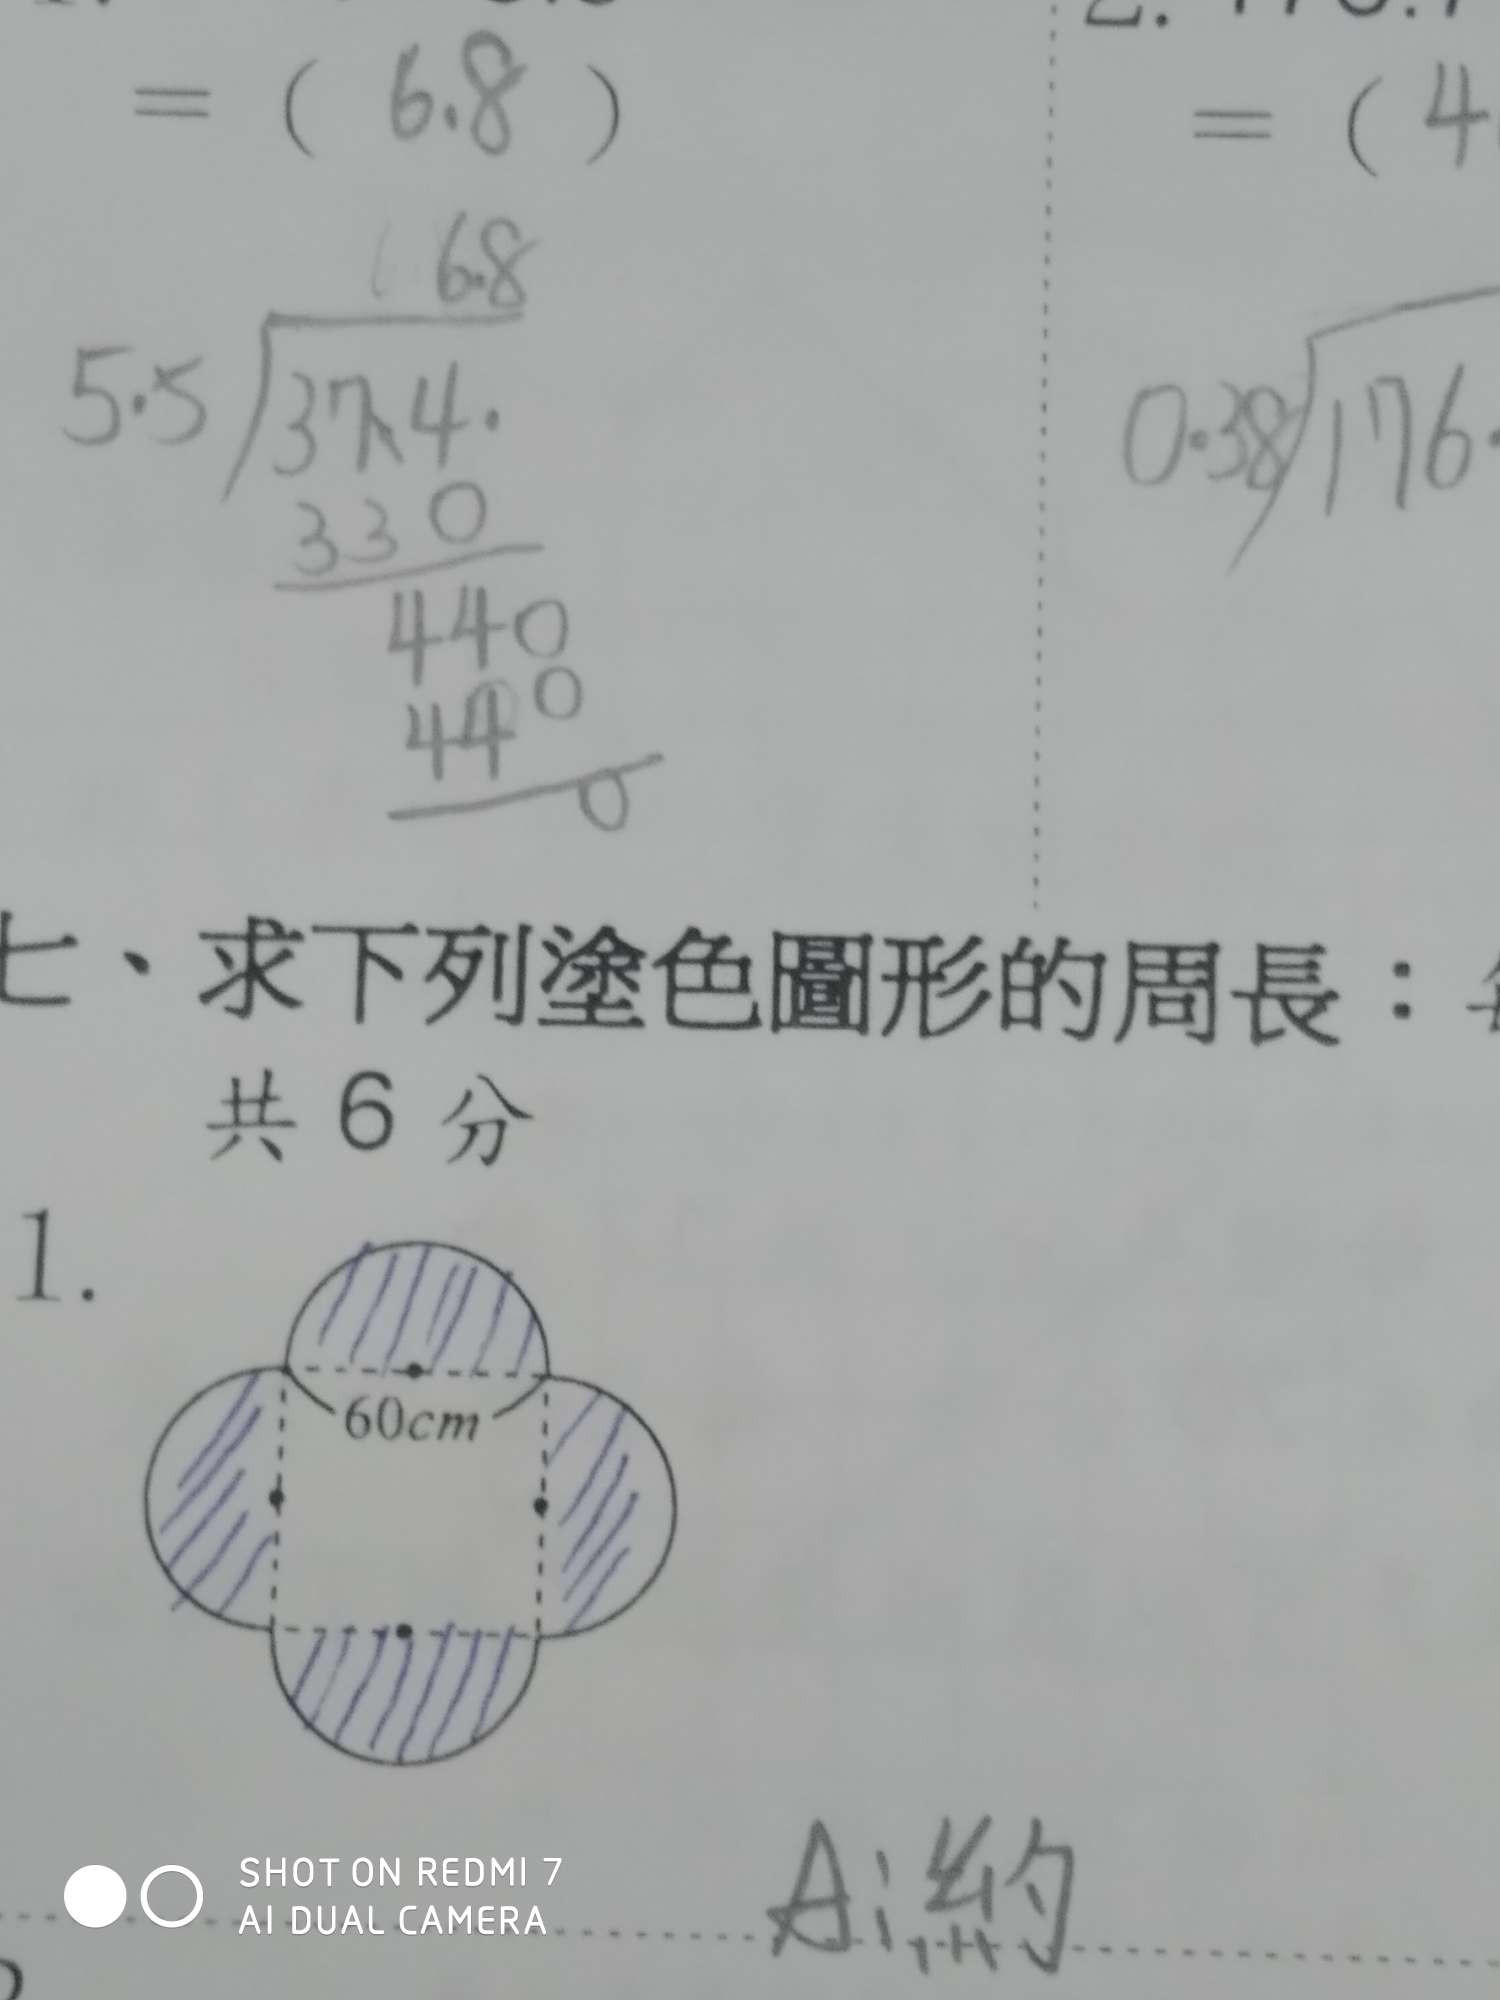 = ( 6.8 )
= ( 4
6.8
5.5 37.4.
0.38 176.
330
440
440
0
七、求下列塗色圖形的周長：
共 6 分
1.
60cm
A:約
SHOT ON REDMI 7
AI DUAL CAMERA